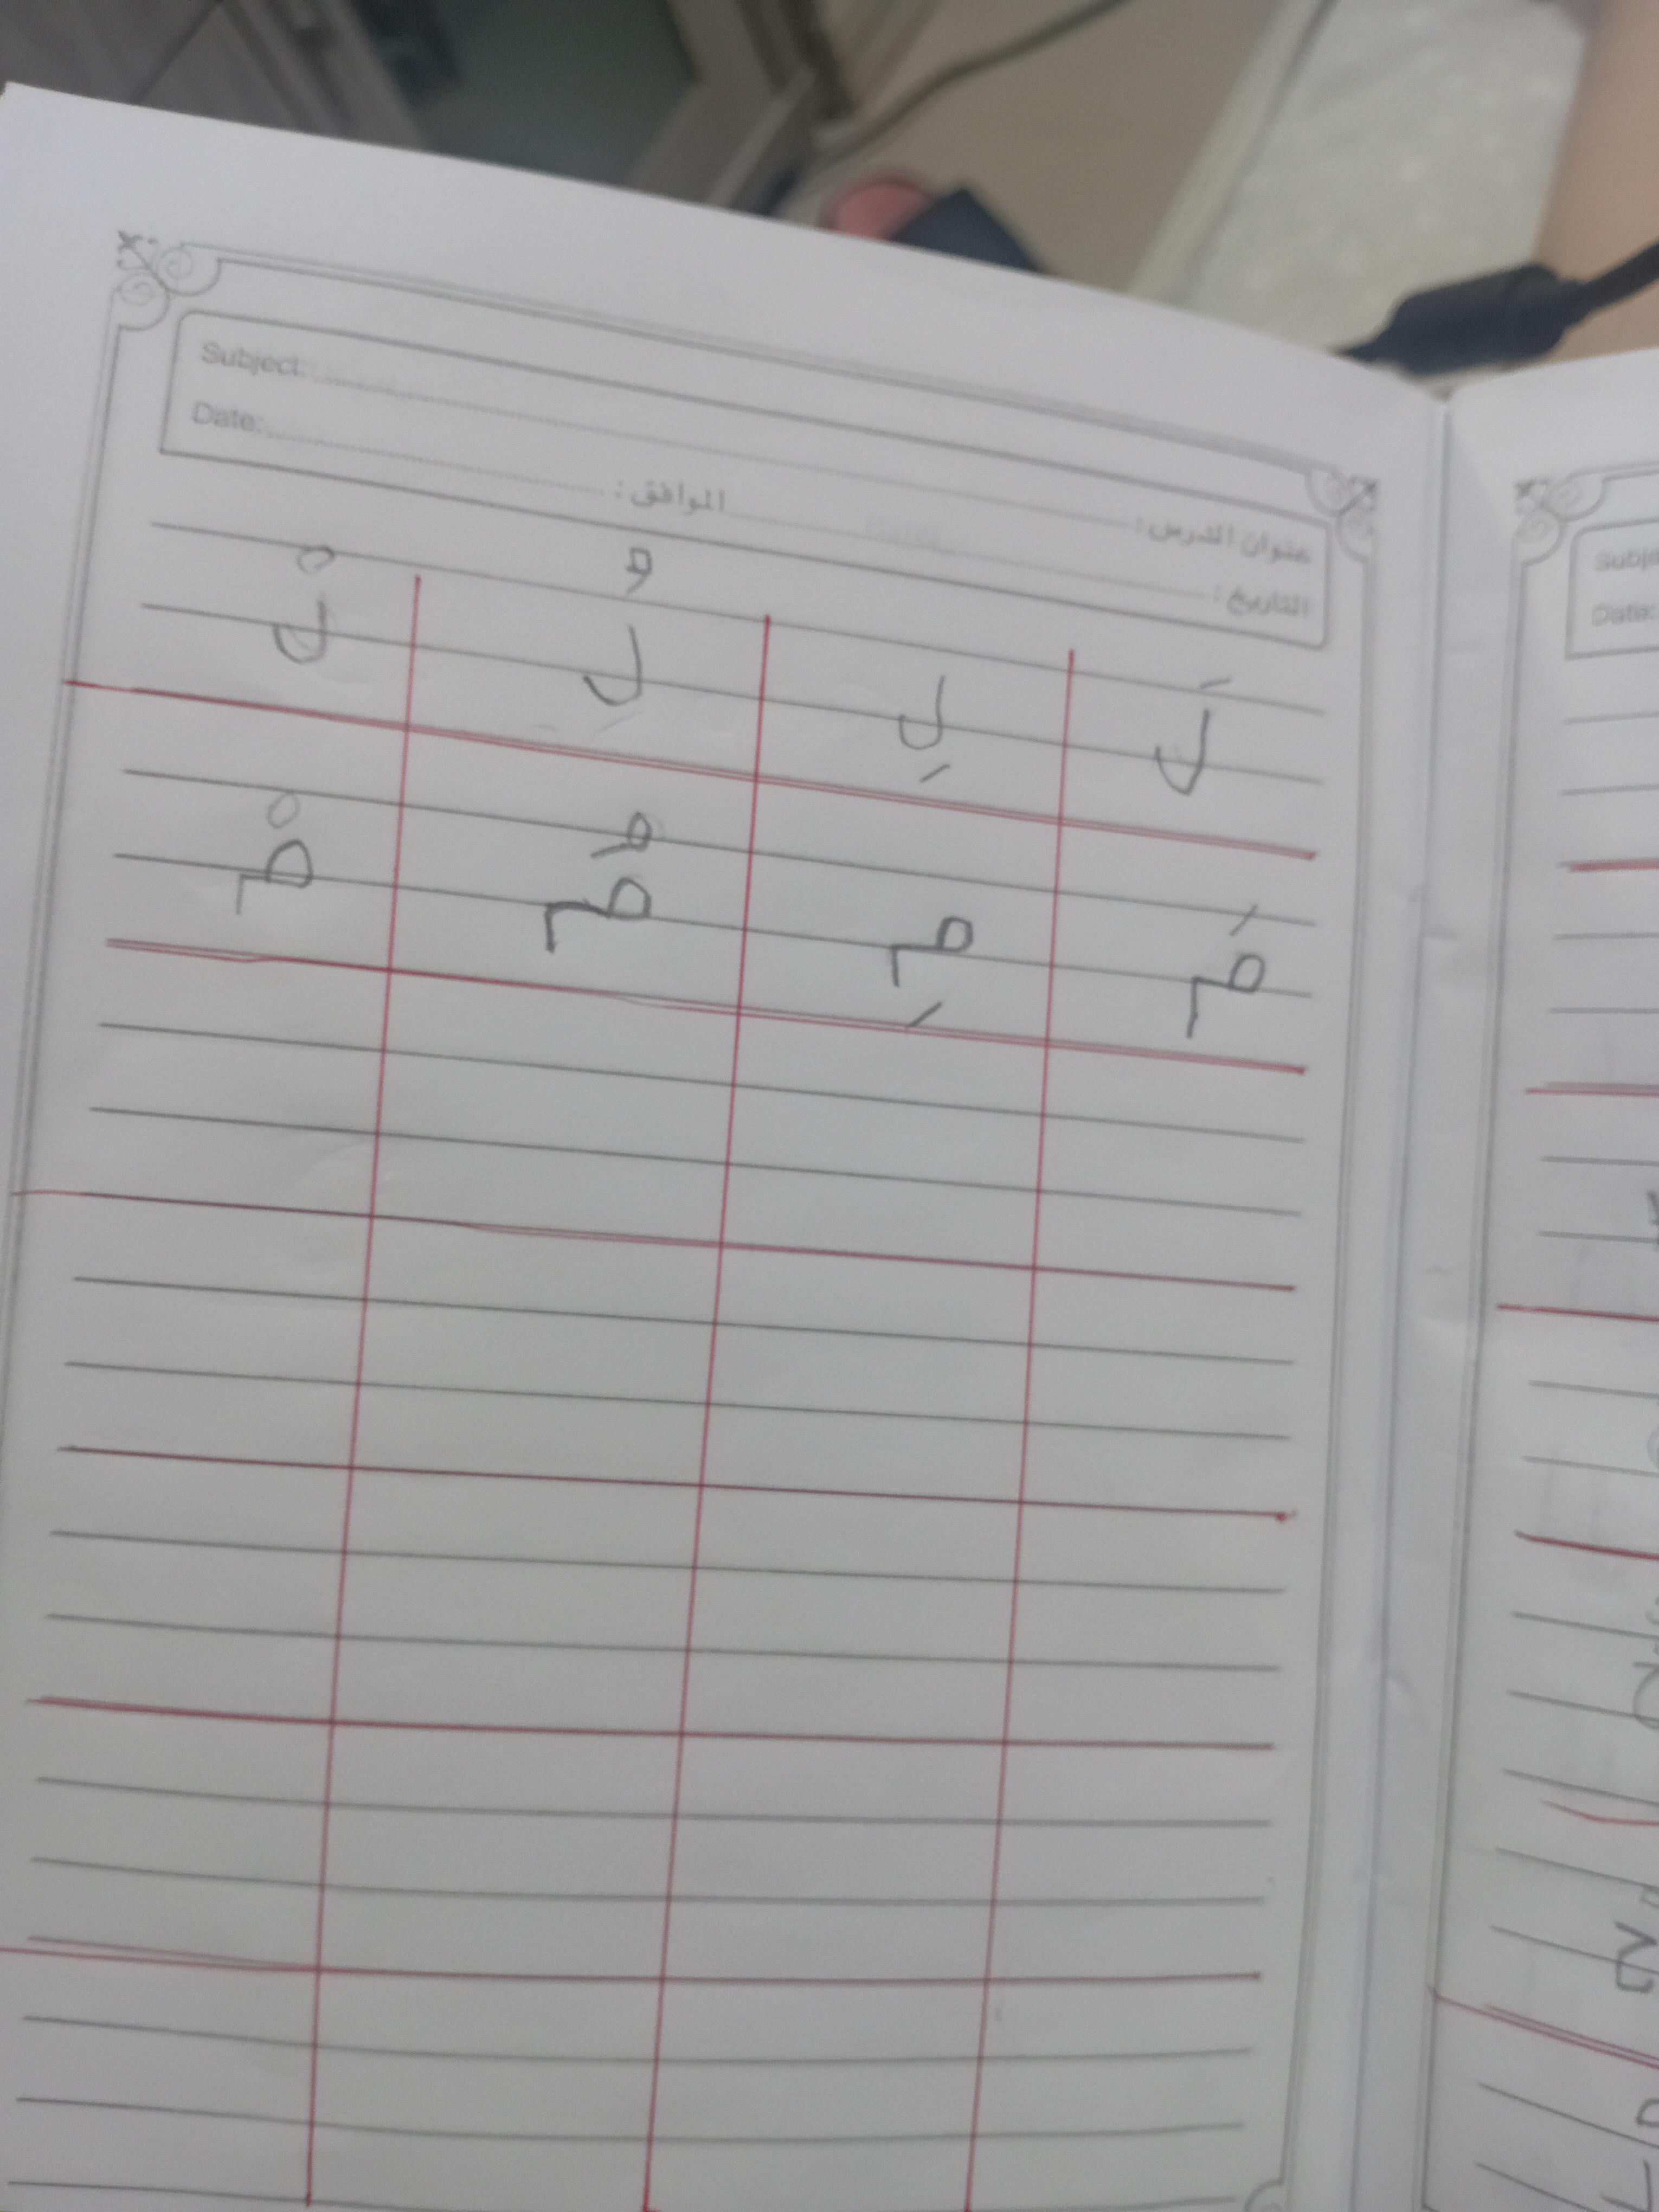 Subject: عنوان الدرس :
Date: الموافق : التاريخ :
لَ لِ لُ لْ
مَ مِ مُ مْ
Subje
Date: